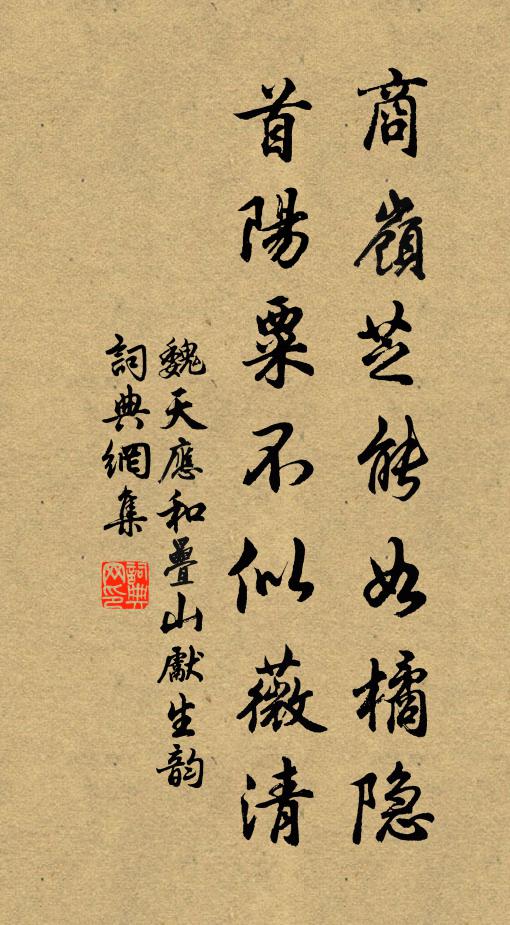 商嶺芝能如橘隐
首陽粟不似薇清
魏天應和疊山獻生韵
詞典網集
詞典網印